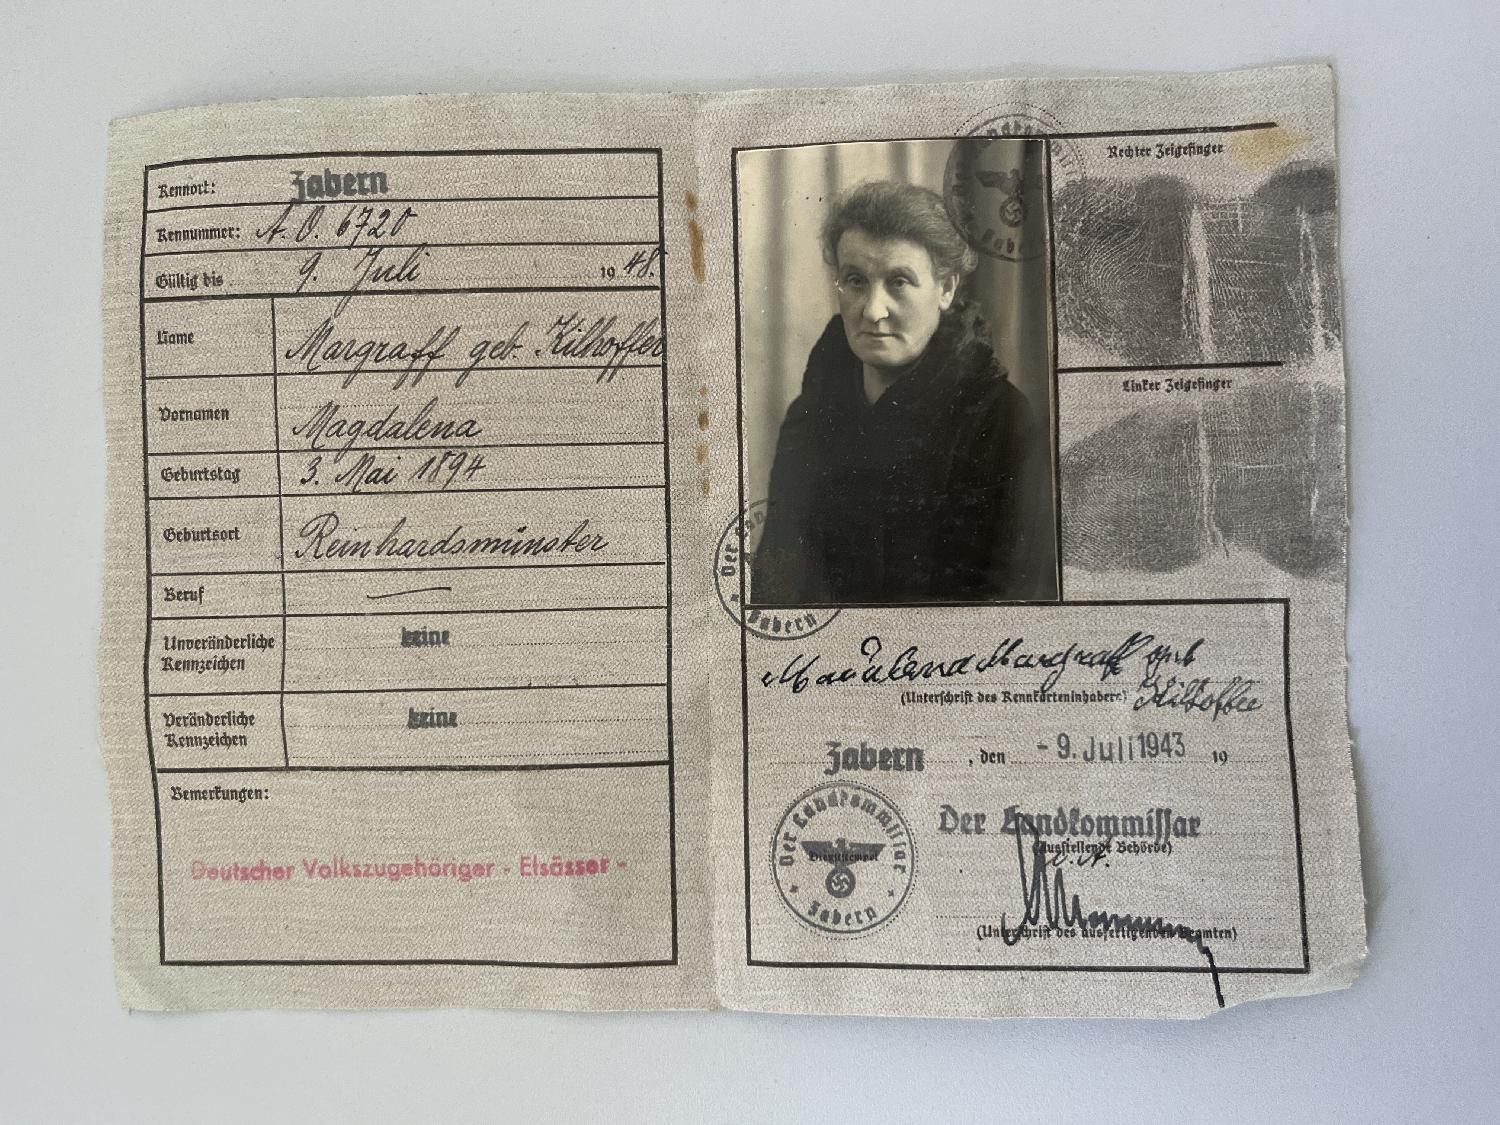 Kennort: Zabern
Kennummer: A. O. 6720
Gültig bis 9. Juli 1948.
Name Margraff geb. Kilhoffer
Vornamen Magdalena
Geburtstag 3. Mai 1894
Geburtsort Reinhardsmünster
Beruf —
Unveränderliche
Kennzeichen keine
Veränderliche
Kennzeichen keine
Bemerkungen:
Deutscher Volkszugehöriger - Elsässer -
Rechter Zeigefinger
Linker Zeigefinger
Der Land
Zabern
Margraff geb
(Unterschrift des Kennkarteninhabers) Kilhoffer
Zabern, den - 9. Juli 1943 19
Der Landkommissar
(Ausstellende Behörde)
Der Landkommissar
Dienststempel
Zabern
(Unterschrift des ausfertigenden Beamten)